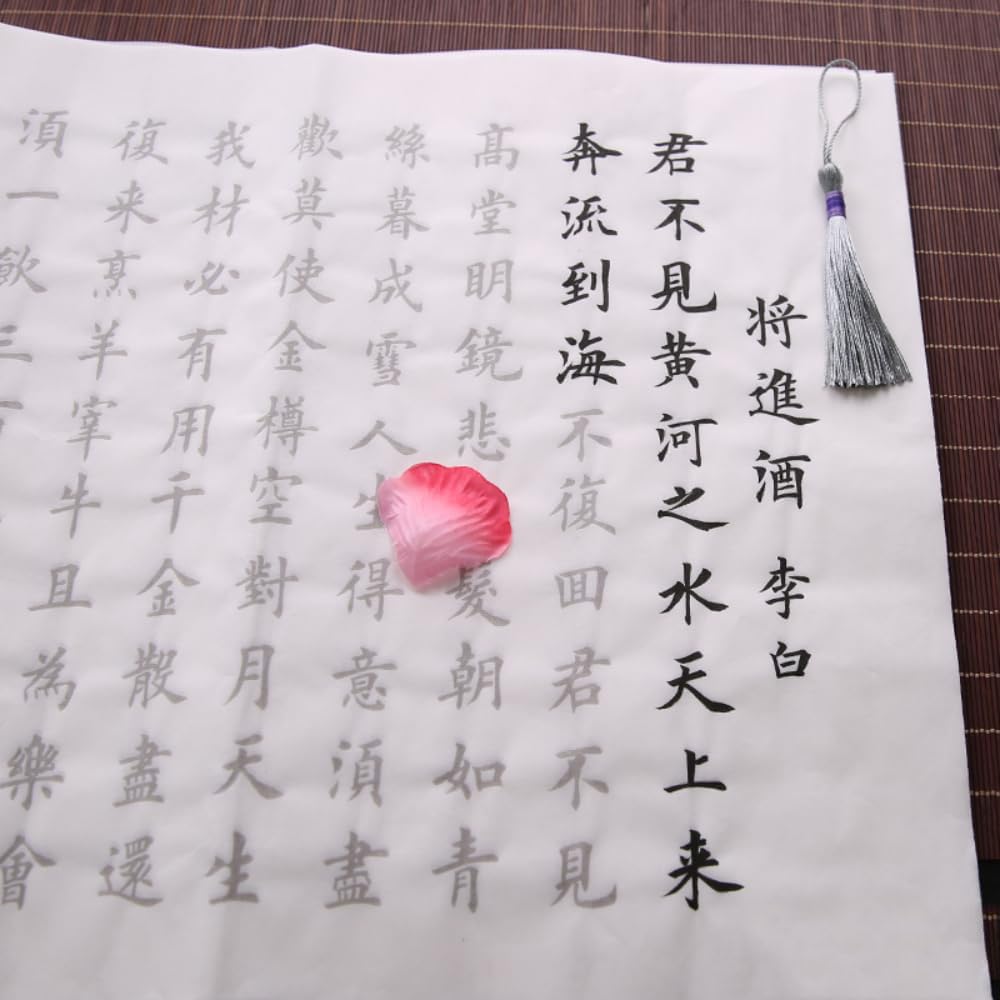 将進酒 李白
君不見黄河之水天上来
奔流到海不復囬君不見
髙堂明鏡悲髮朝如青
絲暮成雪人生得意湏盡
歡莫使金樽空對月天生
我材必有用千金散盡還
復来烹羊宰牛且為樂會
湏一飲三